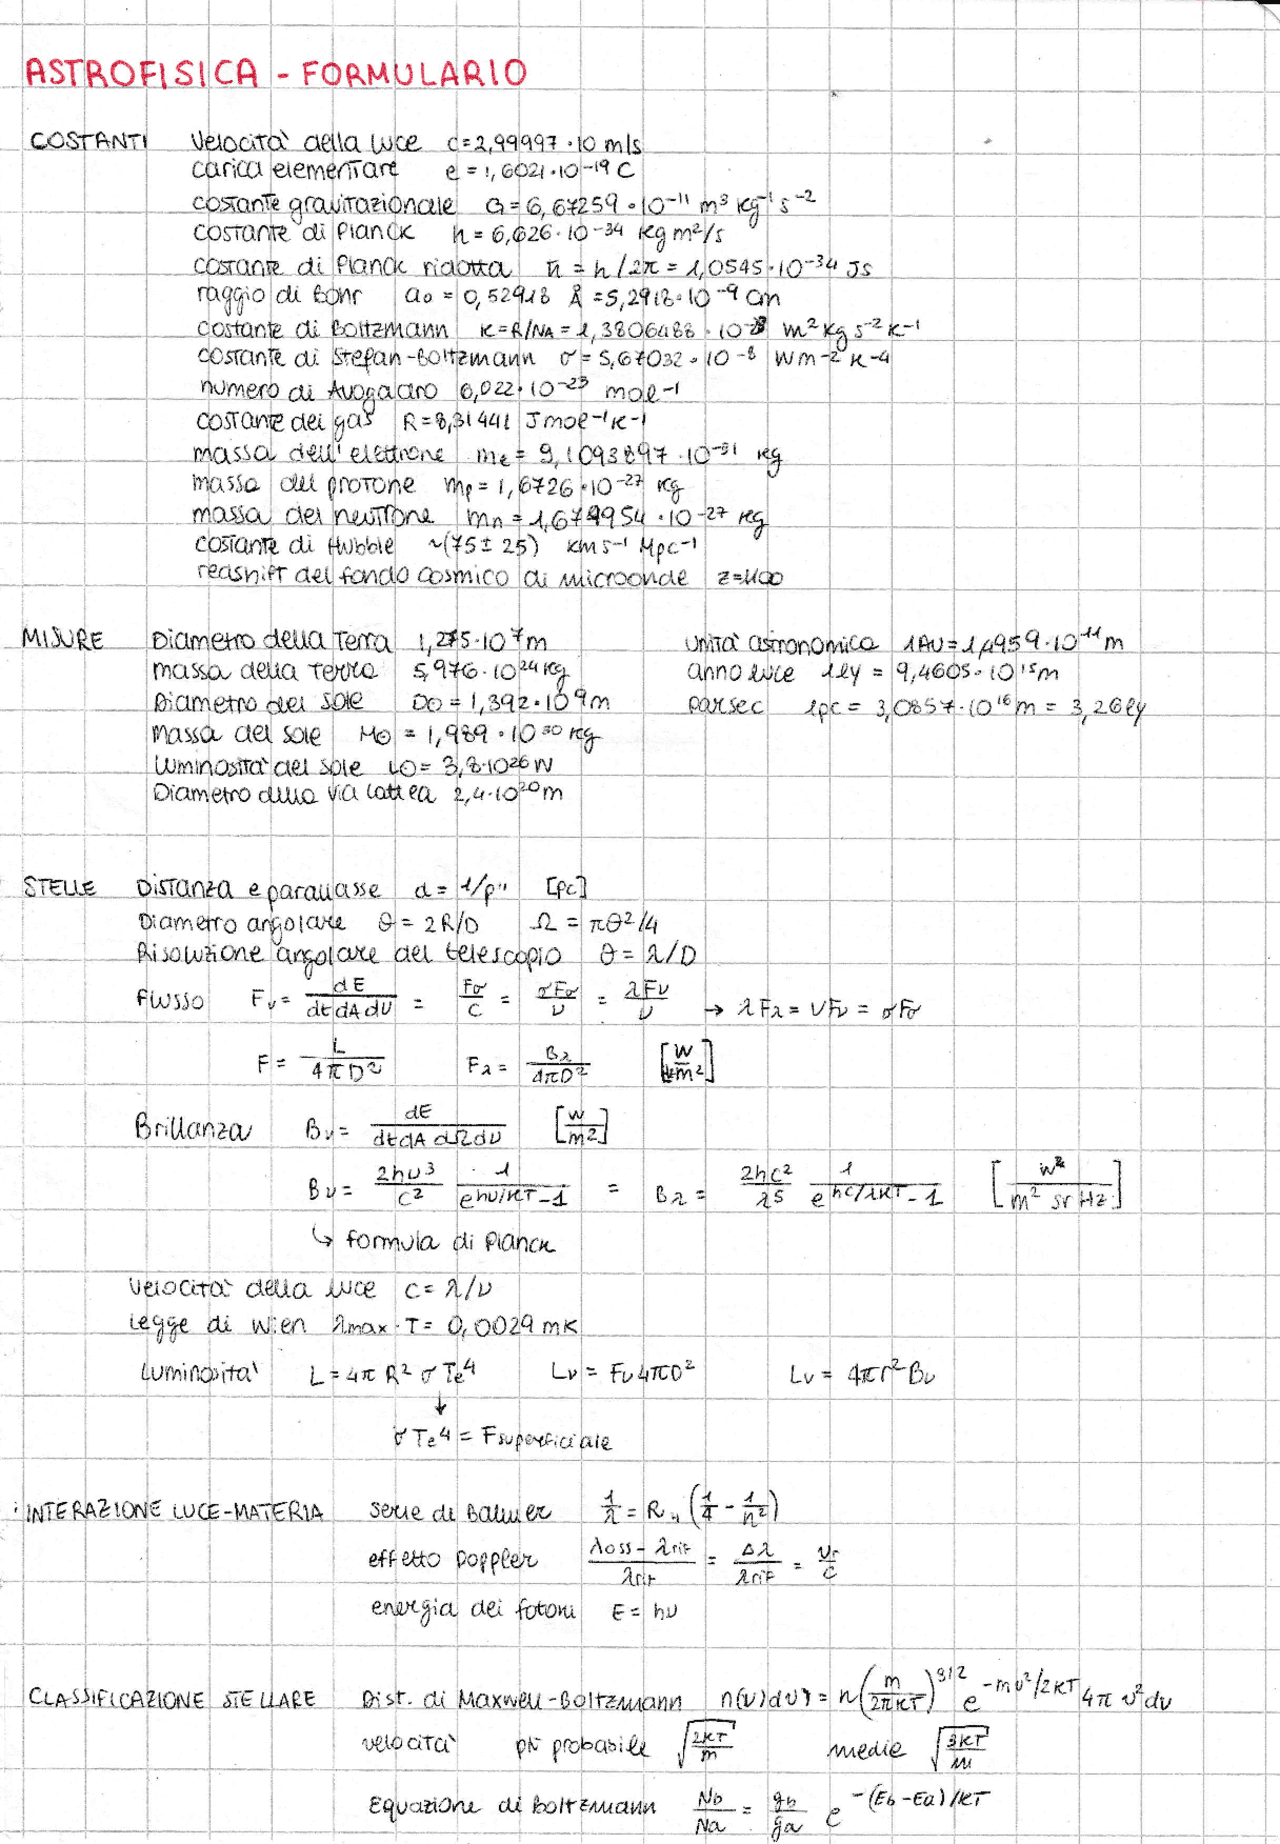 ASTROFISICA - FORMULARIO
COSTANTI Velocità della luce c=2,99997·10 m/s
carica elementare e=1,6021·10⁻¹⁹ C
costante gravitazionale G=6,67259·10⁻¹¹ m³ kg⁻¹ s⁻²
costante di Planck h=6,626·10⁻³⁴ kg m²/s
costante di Planck ridotta ħ = h/2π = 1,0545·10⁻³⁴ Js
raggio di Bohr a₀ = 0,52918 Å = 5,2918·10⁻⁹ cm
costante di Boltzmann K=R/NA = 1,3806488·10⁻²³ m² kg s⁻² K⁻¹
costante di Stefan-Boltzmann σ = 5,67032·10⁻⁸ Wm⁻² K⁻⁴
numero di Avogadro 6,022·10⁻²³ mol⁻¹
costante dei gas R=8,31441 Jmol⁻¹K⁻¹
massa dell'elettrone me = 9,1093897·10⁻³¹ kg
massa del protone mp = 1,6726·10⁻²⁷ kg
massa del neutrone mn = 1,674954·10⁻²⁷ kg
costante di Hubble ~(75±25) km s⁻¹ Mpc⁻¹
redshift del fondo cosmico di microonde z=1100
MISURE Diametro della Terra 1,275·10⁷m unità astronomica 1AU=1,4959·10¹¹m
massa della Terra 5,976·10²⁴kg anno luce 1ly = 9,4605·10¹⁵m
Diametro del sole D⊙ = 1,392·10⁹m parsec 1pc = 3,0857·10¹⁶m = 3,26ly
Massa del sole M⊙ = 1,989·10³⁰kg
Luminosità del sole L⊙ = 3,8·10²⁶W
Diametro della via lattea 2,4·10²⁰m
STELLE Distanza e parallasse d= 1/p'' [pc]
Diametro angolare θ = 2R/D Ω = πθ²/4
Risoluzione angolare del telescopio θ = λ/D
Flusso Fν = dE/(dt dA dν) = Fσ/c = σFσ/ν = λFν/ν → λFλ = νFν = σFσ
F = L/(4πD²) Fλ = Bλ/(4πD²) [W/m²]
Brillanza Bν = dE/(dt dA dΩ dν) [W/m²]
Bν = 2hν³/c² · 1/(e^(hν/KT) - 1) = Bλ = 2hc²/λ⁵ 1/(e^(hc/λKT) - 1) [W/(m² sr Hz)]
↳ formula di Planck
Velocità della luce c = λ/ν
Legge di Wien λmax·T = 0,0029 mK
Luminosità L = 4πR²σTe⁴ Lν = Fν4πD² Lν = 4πr²Bν
↓
σTe⁴ = Fsuperficiale
INTERAZIONE LUCE-MATERIA Serie di Balmer 1/λ = R_H (1/4 - 1/n²)
effetto Doppler (λoss - λrif)/λrif = Δλ/λrif = vr/c
energia dei fotoni E = hν
CLASSIFICAZIONE STELLARE Dist. di Maxwell-Boltzmann n(v)dv = n(m/(2πKT))^(3/2) e^(-mv²/2KT) 4π v²dv
velocità più probabile √(2KT/m) medie √(3KT/m)
Equazione di Boltzmann Nb/Na = gb/ga e^(-(Eb-Ea)/KT)